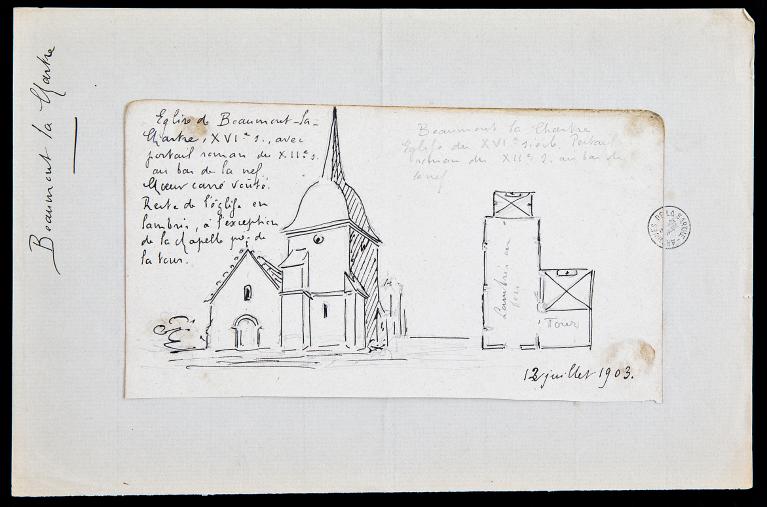 Beaumont la Chartre
Eglise de Beaumont-la-
Chartre, XVIe s., avec
portail roman du XIIe s.
au bas de la nef.
Chœur carré voûté.
Reste de l'église en
lambris, à l'exception
de la chapelle près de
la tour.
Beaumont la Chartre
Eglise du XVIe siècle. Portail
roman du XIIe s. au bas de
la nef
Lambris en
Tour
12 juillet 1903.
DE LA SARTHE